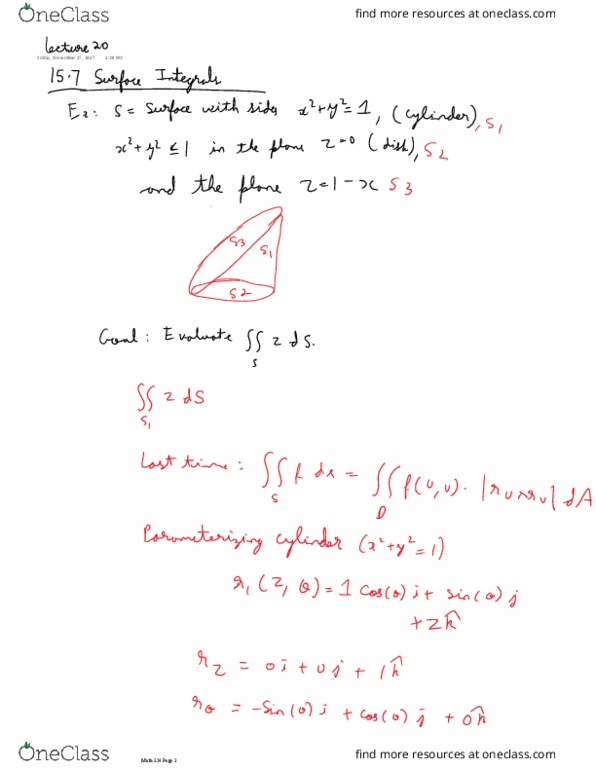 OneClass
find more resources at oneclass.com
Lecture 20
15.7 Surface Integrals
Ex: S = Surface with sides x²+y²=1, (cylinder), S1
x²+y² ≤ 1 in the plane z=0 (disk), S2
and the plane z=1-x S3
S3
S1
S2
Goal: Evaluate ∬_S z dS.
∬_S1 z dS
Last time: ∬_S f ds = ∬_D f(u,v). |ru×rv| dA
Parameterizing cylinder (x²+y²=1)
r₁(z, θ) = 1 cos(θ) i + sin(θ) j
+ z k̂
r_z = 0i + 0j + 1k̂
r_θ = -sin(θ) i + cos(θ) j + 0k̂
OneClass
Math 224 Page 1
find more resources at oneclass.com